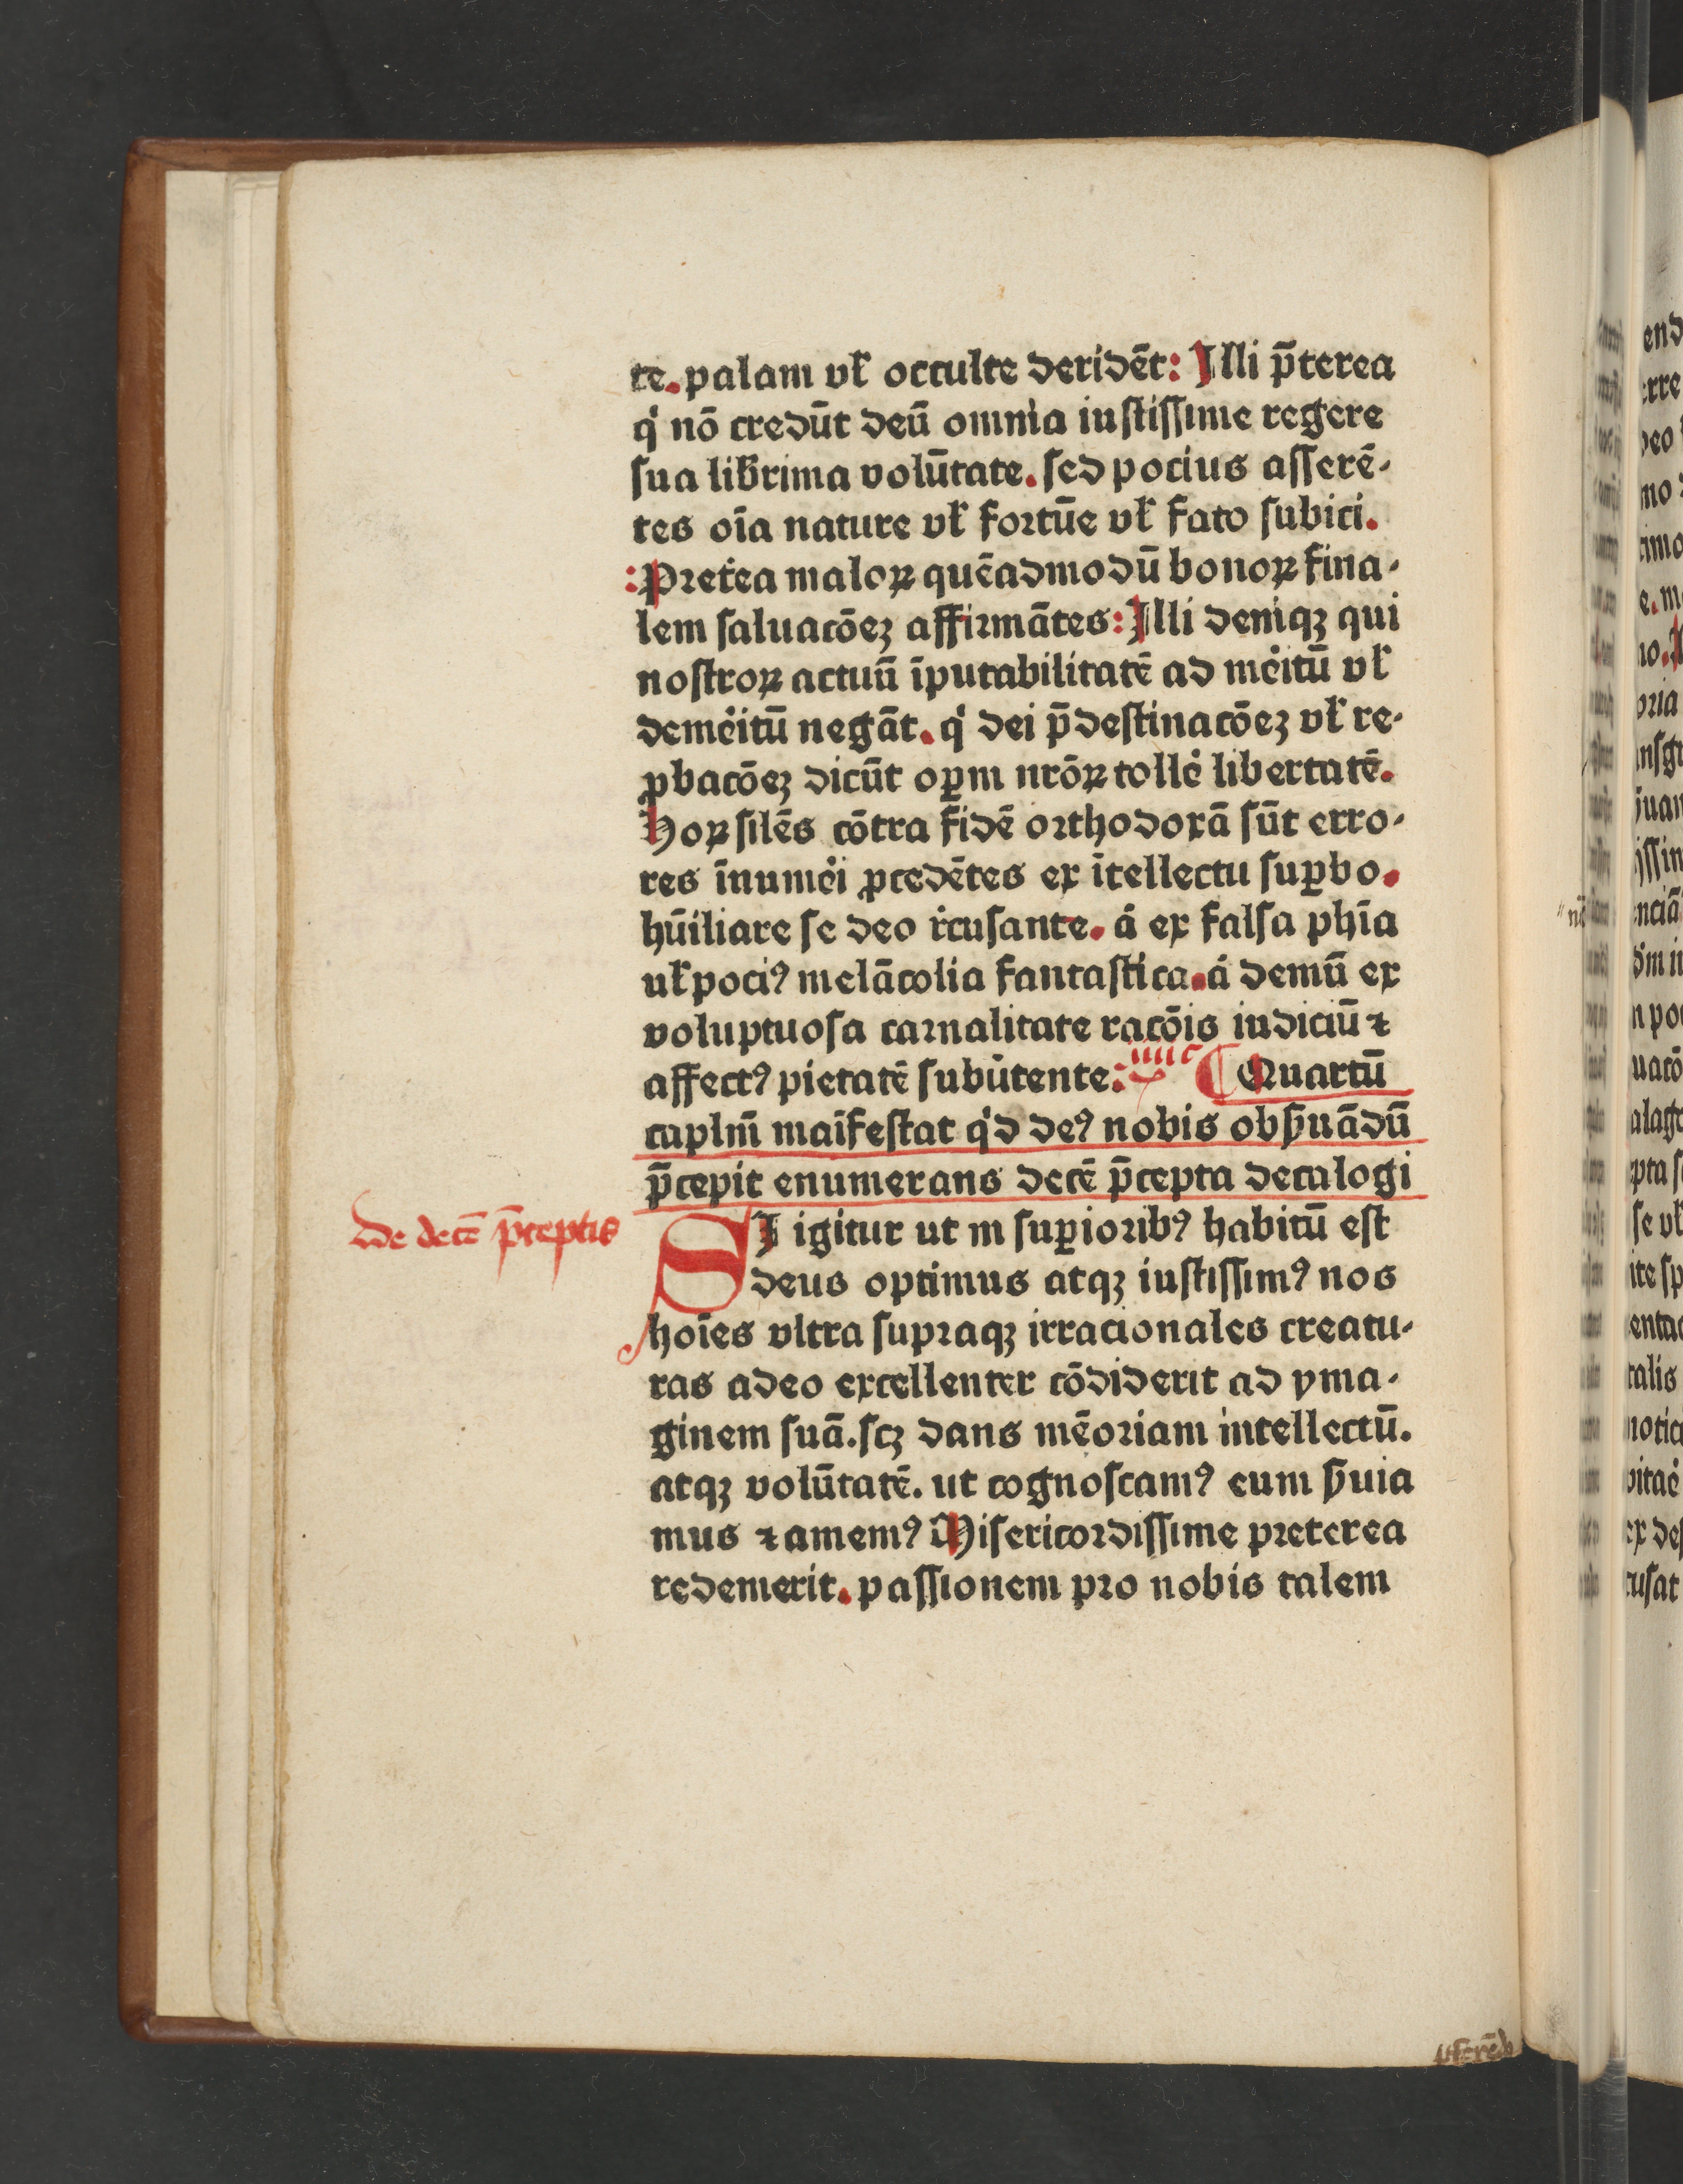 te. palam vł occulte deridēt: Illi p̄terea
qͥ nō credūt deū omnia iustissime regere
sua lib̄rima volūtate. sed pocius asserē-
tes oīa nature vł fortūe vł fato subici.
:Pret͛ea maloꝝ quēadmodū bonoꝝ fina-
lem saluacōeꝫ affirmātes: Illi deniqꝫ qui
nostroꝝ actuū īputabilitatē ad me͛itū vł
deme͛itū negāt. qͥ dei p̄destinacōeꝫ vł re-
ꝓbacōeꝫ dicūt oꝑm nr̄oꝝ tolle͛ libertatē.
Hoꝝ silēs cōtra fidē orthodoxā sūt erro-
res īnume͛i ꝓcedētes ex ītellectu suꝑbo.
hūiliare se deo r͛cusante. aͨ ex falsa ph̄ia
uł pociꝰ melācolia fantastica. aͨ demū ex
voluptuosa carnalitate racōis iudiciū ⁊
affectꝰ pietatē subu͛tente: IIIIc ¶ Quartū
caplm̄ maīfestat qͥd deꝰ nobis obẜuādū
p̄cepit enumerans decē p̄cepta decalogi
De decē p̄ceptis
SI igitur ut in suꝑioribꝰ habitū est
deus optimus atqꝫ iustissimꝰ nos
hoīes vltra supraqꝫ irracionales creatu-
ras adeo excellenter cōdiderit ad yma-
ginem suā. scꝫ dans mēoriam intellectū.
atqꝫ volūtatē. ut cognoscamꝰ eum ẜuia
mus ⁊ amemꝰ Misericordissime preterea
redemerit. passionem pro nobis talem